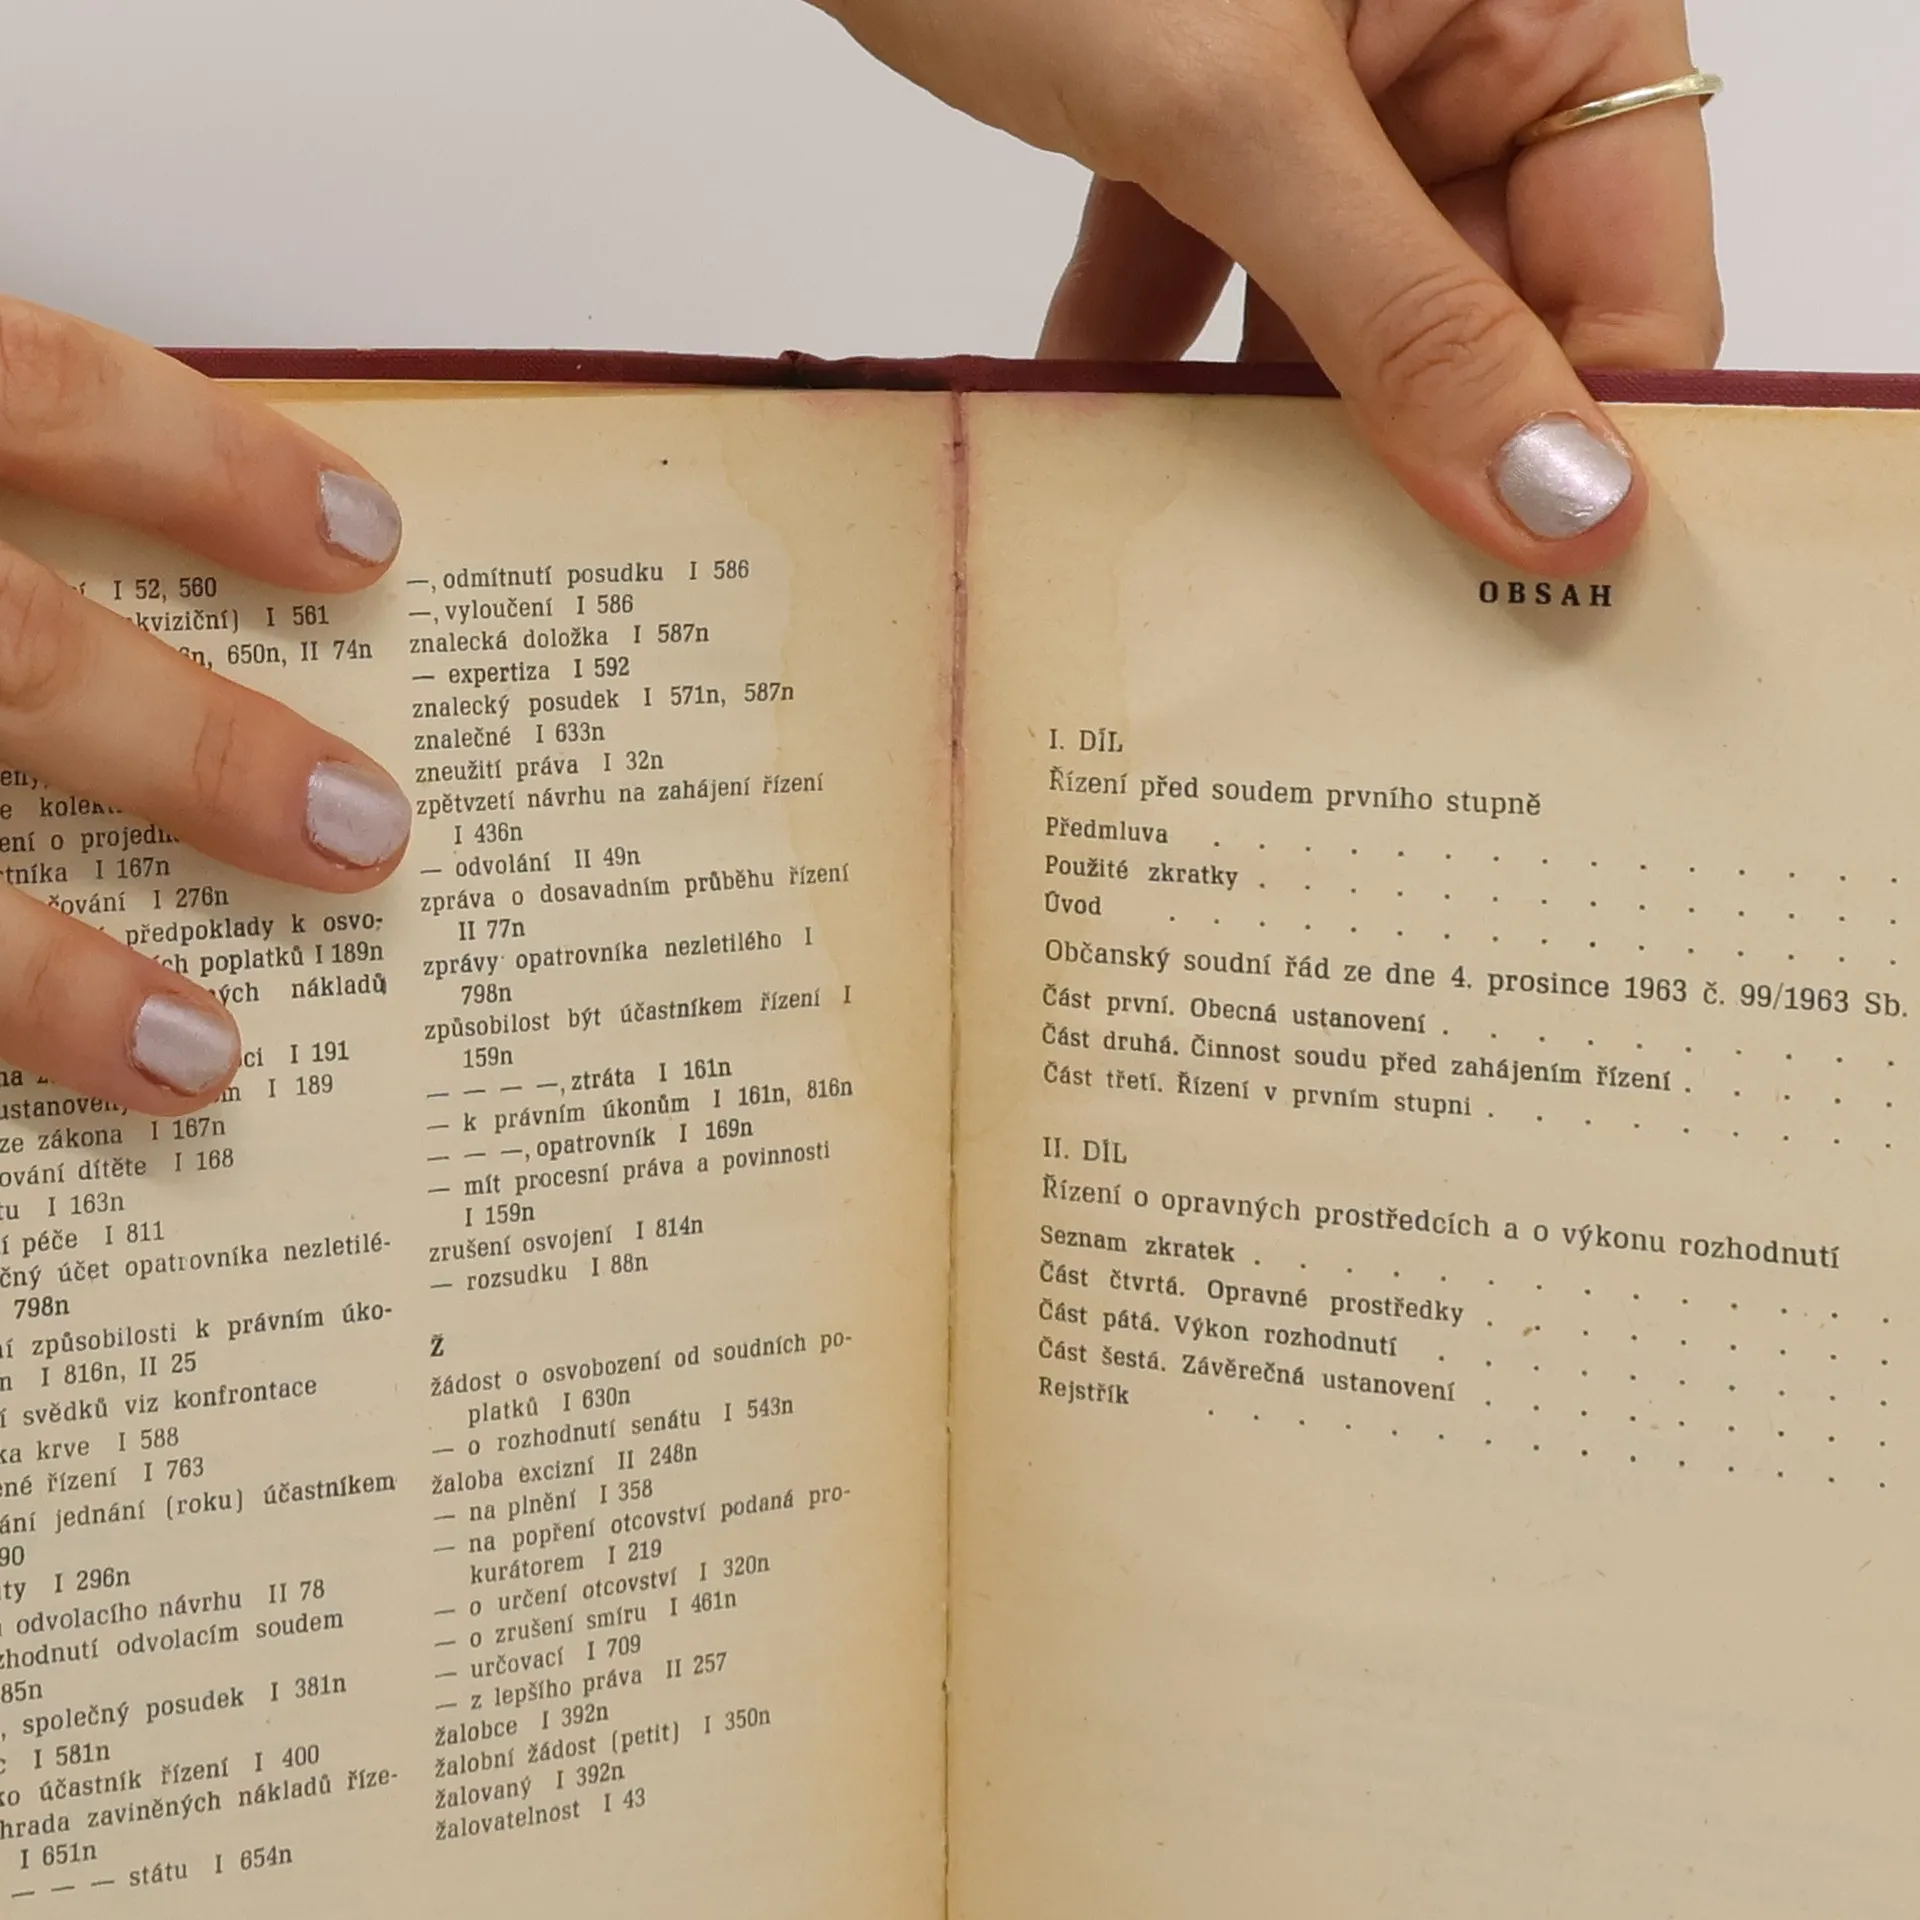 I 52, 560
I 561
650n, II 74n
e
ení o
I 167n
I 276n
předpoklady k osvo-
poplatků I 189n
nákladů
I 191
I 189
ze zákona I 167n
dítěte I 168
I 163n
péče I 811
účet opatrovníka nezletilé-
798n
způsobilosti k právním úko-
I 816n, II 25
svědků viz konfrontace
krve I 588
řízení I 763
jednání (roku) účastníkem
90
I 296n
odvolacího návrhu II 78
odvolacím soudem
85n
, společný posudek I 381n
I 581n
účastník řízení I 400
zaviněných nákladů říze-
I 651n
— — — státu I 654n
—, odmítnutí posudku I 586
—, vyloučení I 586
znalecká doložka I 587n
— expertiza I 592
znalecký posudek I 571n, 587n
znalečné I 633n
zneužití práva I 32n
zpětvzetí návrhu na zahájení řízení
I 436n
— odvolání II 49n
zpráva o dosavadním průběhu řízení
II 77n
zprávy opatrovníka nezletilého I
798n
způsobilost být účastníkem řízení I
159n
— — — —, ztráta I 161n
— k právním úkonům I 161n, 816n
— — —, opatrovník I 169n
— mít procesní práva a povinnosti
I 159n
zrušení osvojení I 814n
— rozsudku I 88n
Ž
žádost o osvobození od soudních po-
platků I 630n
— o rozhodnutí senátu I 543n
žaloba excizní II 248n
— na plnění I 358
— na popření otcovství podaná pro-
kurátorem I 219
— o určení otcovství I 320n
— o zrušení smíru I 461n
— určovací I 709
— z lepšího práva II 257
žalobce I 392n
žalobní žádost (petit) I 350n
žalovaný I 392n
žalovatelnost I 43
OBSAH
I. DÍL
Řízení před soudem prvního stupně
Předmluva . . . . . . . . . . . . . . .
Použité zkratky . . . . . . . . . . . . . .
Úvod . . . . . . . . . . . . . . . .
Občanský soudní řád ze dne 4. prosince 1963 č. 99/1963 Sb.
Část první. Obecná ustanovení . . . . . . . . . .
Část druhá. Činnost soudu před zahájením řízení . . . . .
Část třetí. Řízení v prvním stupni . . . . . . . . .
II. DÍL
Řízení o opravných prostředcích a o výkonu rozhodnutí
Seznam zkratek . . . . . . . . . . . . . .
Část čtvrtá. Opravné prostředky . . . . . . . . .
Část pátá. Výkon rozhodnutí . . . . . . . . . .
Část šestá. Závěrečná ustanovení . . . . . . . . .
Rejstřík . . . . . . . . . . . . . . .